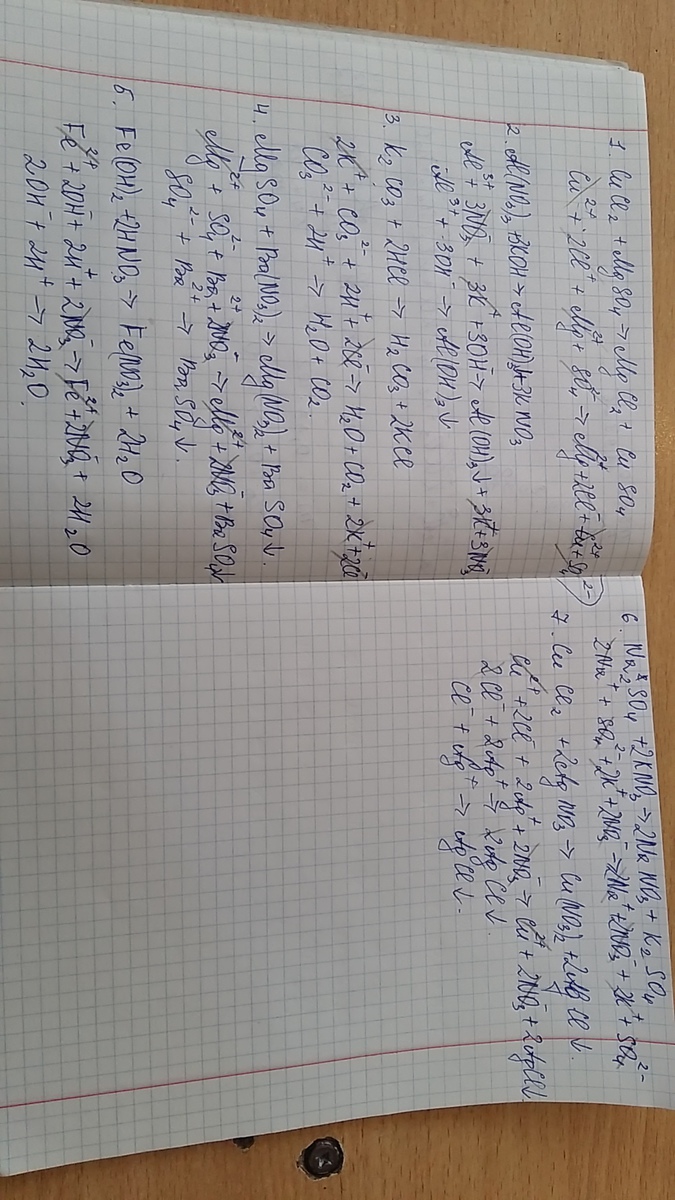 1. CuCl₂ + MgSO₄ → MgCl₂ + CuSO₄
Cu²⁺ + 2Cl⁻ + Mg²⁺ + SO₄²⁻ → Mg²⁺ + 2Cl⁻ + Cu²⁺ + SO₄²⁻
2. Al(NO₃)₃ + 3KOH → Al(OH)₃↓ + 3KNO₃
Al³⁺ + 3NO₃⁻ + 3K⁺ + 3OH⁻ → Al(OH)₃↓ + 3K⁺ + 3NO₃⁻
Al³⁺ + 3OH⁻ → Al(OH)₃↓
3. K₂CO₃ + 2HCl → H₂CO₃ + 2KCl
2K⁺ + CO₃²⁻ + 2H⁺ + 2Cl⁻ → H₂O + CO₂ + 2K⁺ + 2Cl⁻
CO₃²⁻ + 2H⁺ → H₂O + CO₂
4. MgSO₄ + Ba(NO₃)₂ → Mg(NO₃)₂ + BaSO₄↓.
Mg²⁺ + SO₄²⁻ + Ba²⁺ + 2NO₃⁻ → Mg²⁺ + 2NO₃⁻ + BaSO₄↓
SO₄²⁻ + Ba²⁺ → BaSO₄↓.
5. Fe(OH)₂ + 2HNO₃ → Fe(NO₃)₂ + 2H₂O
Fe²⁺ + 2OH⁻ + 2H⁺ + 2NO₃⁻ → Fe²⁺ + 2NO₃⁻ + 2H₂O
2OH⁻ + 2H⁺ → 2H₂O.
6. Na₂SO₄ + 2KNO₃ → 2NaNO₃ + K₂SO₄
2Na⁺ + SO₄²⁻ + 2K⁺ + 2NO₃⁻ → 2Na⁺ + 2NO₃⁻ + 2K⁺ + SO₄²⁻
7. CuCl₂ + 2AgNO₃ → Cu(NO₃)₂ + 2AgCl↓.
Cu²⁺ + 2Cl⁻ + 2Ag⁺ + 2NO₃⁻ → Cu²⁺ + 2NO₃⁻ + 2AgCl↓
2Cl⁻ + 2Ag⁺ → 2AgCl↓.
Cl⁻ + Ag⁺ → AgCl↓.